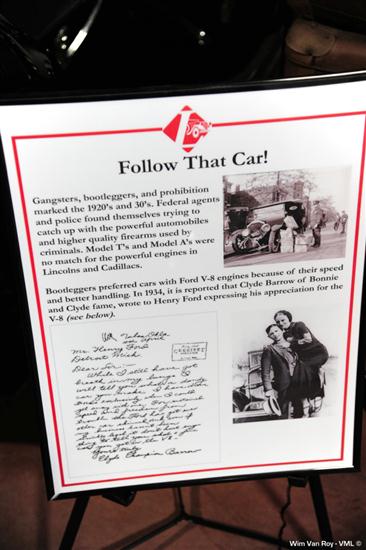 Follow That Car!
Gangsters, bootleggers, and prohibition
marked the 1920's and 30's. Federal agents
and police found themselves trying to
catch up with the powerful automobiles
and higher quality firearms used by
criminals. Model T's and Model A's were
no match for the powerful engines in
Lincolns and Cadillacs.
Bootleggers preferred cars with Ford V-8 engines because of their speed
and better handling. In 1934, it is reported that Clyde Barrow of Bonnie
and Clyde fame, wrote to Henry Ford expressing his appreciation for the
V-8 (see below).
Tulsa Okla
10th April
Mr. Henry Ford
Detroit Mich.
Dear Sir:-
While I still have got
breath in my lungs I
will tell you what a dandy
car you make. I have drove
Fords exclusively when I could
get away with one. For sustained
speed and freedom from
trouble the Ford has got ever
other car skinned and even if
my business hasen't been
strickly legal it don't hurt any
thing to tell you what a fine
car you got in the V8
Yours truly
Clyde Champion Barrow
Wim Van Roy - VML ©